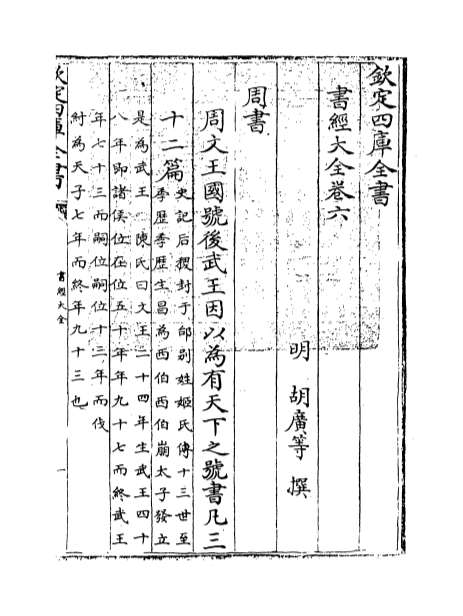 欽定四庫全書
書經大全卷六
明 胡廣等 撰
周書
周文王國號後武王因以為有天下之號書凡三
十二篇史記后稷封于邰别姓姬氏傳十三世至
季歴季歴生昌為西伯西伯崩太子發立
是為武王 陳氏曰文王二十四年生武王四十
八年即諸侯位在位五十年年九十七而終武王
年七十三而嗣位嗣位十三年而伐
紂為天子七年而終年九十三也
欽定四庫全書
書經大全
一